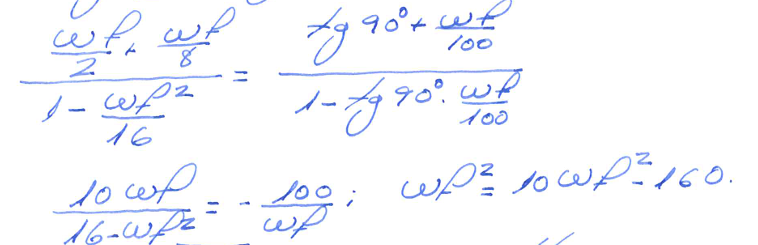 (ωf/2 + ωf/8) / (1 - ωf²/16) = (tg 90° + ωf/100) / (1 - tg 90° · ωf/100)
10 ωf / (16 - ωf²) = - 100/ωf ; ωf² = 10 ωf² - 160.